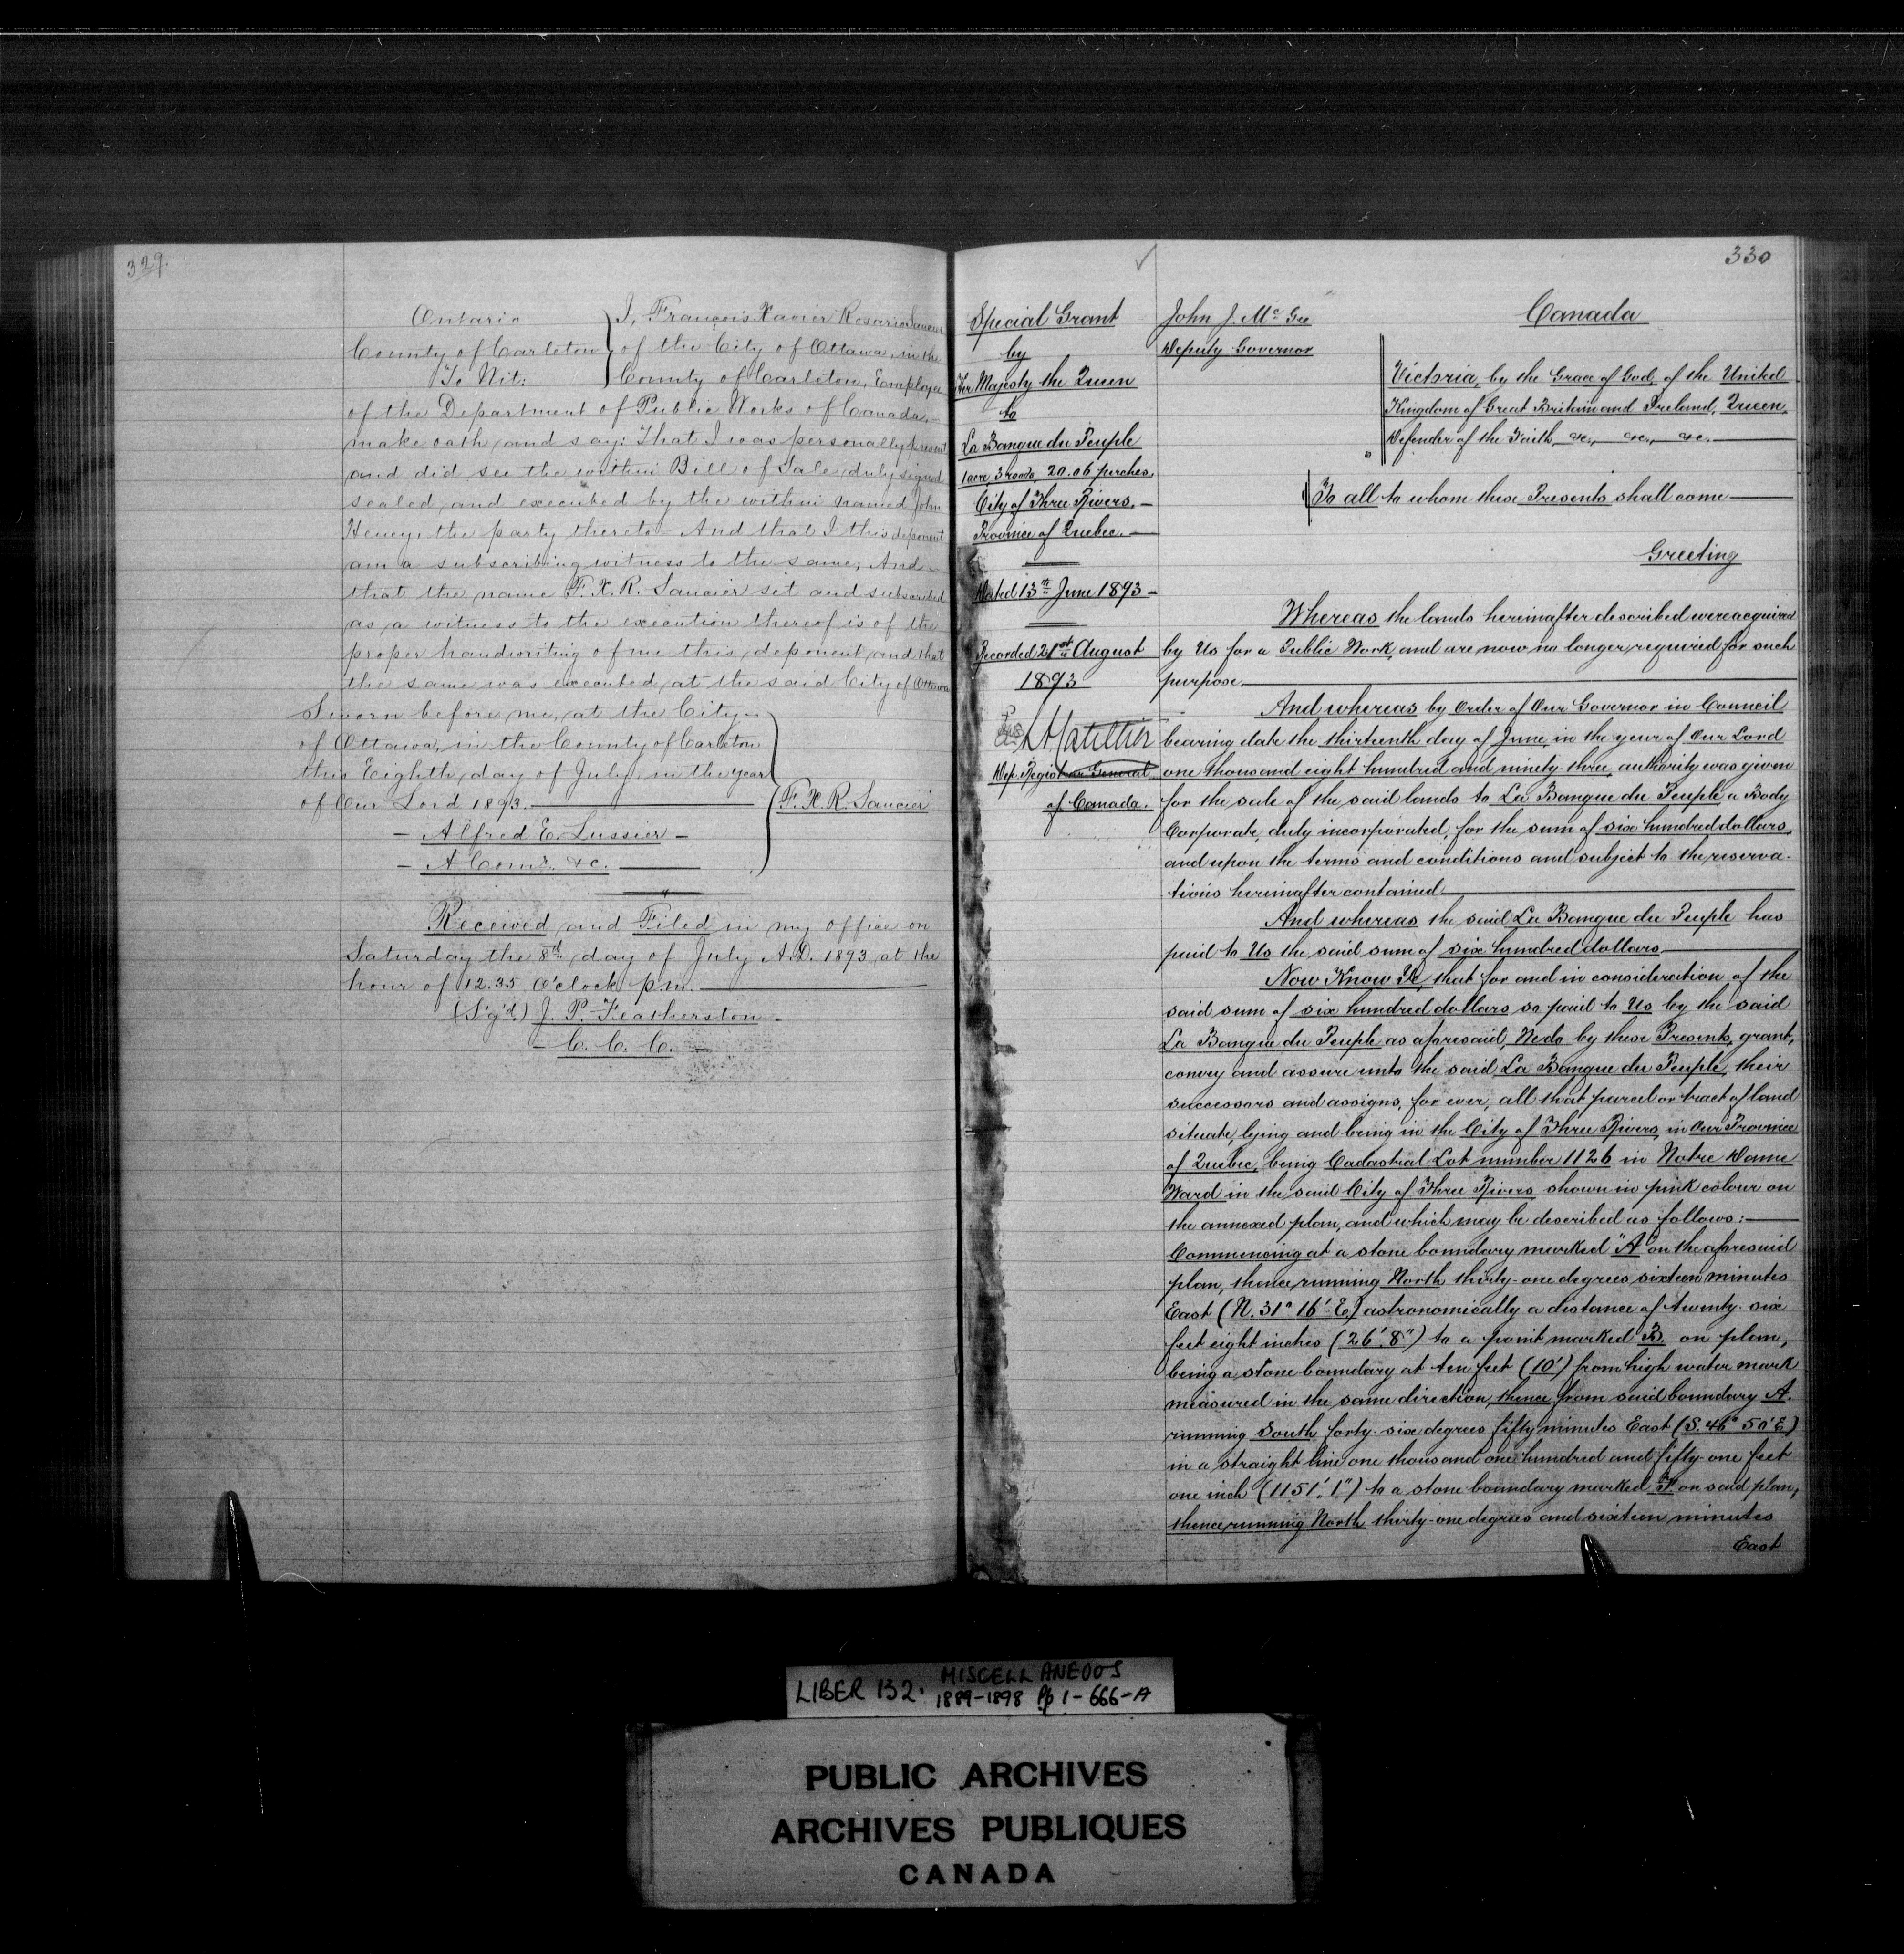 329.
Ontario
County of Carleton
To Wit:
I, François Xavier Rosario Saucier
of the City of Ottawa, in the
County of Carleton, Employee
of the Department of Public Works of Canada,
make oath and say: That I was personally present
and did see the within Bill of Sale duly signed
sealed and executed by the within named John
Heney, the party thereto And that I this deponent
am a subscribing witness to the same; And
that the name F. X. R. Saucier set and subscribed
as a witness to the execution thereof is of the
proper handwriting of me this deponent and that
the same was executed at the said City of Ottawa
Sworn before me, at the City
of Ottawa, in the County of Carleton
this Eighth day of July in the year
of Our Lord 1893.
F. X. R. Saucier
- Alfred E. Lussier -
- A Comr. &c.
Received and Filed in my office on
Saturday the 8th day of July A.D. 1893 at the
hour of 12.35 O'clock p.m.
(Sig'd.) J. P. Featherston -
- C. C. C. -
330
Special Grant
by
Her Majesty the Queen
to
La Banque du Peuple
1 acre, 3 roods, 20.06 perches,
City of Three Rivers, -
Province of Quebec. -
Dated 13th June 1893 -
Recorded 21st August
1893
Dep. Registrar General
of Canada.
John J. McGee
Deputy Governor
Canada
Victoria, by the Grace of God, of the United
Kingdom of Great Britain and Ireland, Queen,
Defender of the Faith, &c., &c., &c.
To all to whom these Presents shall come
Greeting
Whereas the lands hereinafter described were acquired
by Us for a Public Work, and are now no longer required for such
purpose.
And whereas by Order of Our Governor in Council
bearing date the thirteenth day of June, in the year of Our Lord
one thousand eight hundred and ninety-three, authority was given
for the sale of the said lands to La Banque du Peuple, a Body
Corporate, duly incorporated, for the sum of six hundred dollars,
and upon the terms and conditions and subject to the reserva-
tions hereinafter contained.
And whereas the said La Banque du Peuple has
paid to Us the said sum of six hundred dollars
Now Know Ye, that for and in consideration of the
said sum of six hundred dollars so paid to Us by the said
La Banque du Peuple as aforesaid, We do by these Presents, grant,
convey and assure unto the said La Banque du Peuple, their
successors and assigns, for ever, all that parcel or tract of land
situate, lying and being in the City of Three Rivers, in Our Province
of Quebec, being Cadastral Lot number 1126 in Notre Dame
Ward in the said City of Three Rivers, shown in pink colour on
the annexed plan, and which may be described as follows:-
Commencing at a stone boundary marked "A" on the aforesaid
plan, thence running North thirty-one degrees sixteen minutes
East (N. 31° 16' E.) astronomically a distance of twenty-six
feet eight inches (26'. 8") to a point marked B. on plan,
being a stone boundary at ten feet (10') from high water mark
measured in the same direction, thence from said boundary A.
running South forty-six degrees fifty minutes East (S. 46° 50' E)
in a straight line one thousand one hundred and fifty-one feet
one inch (1151'. 1") to a stone boundary marked F. on said plan,
thence running North thirty-one degrees and sixteen minutes
East
LIBER 132. MISCELLANEOUS
1889-1898 Pp 1-666-A
PUBLIC ARCHIVES
ARCHIVES PUBLIQUES
CANADA